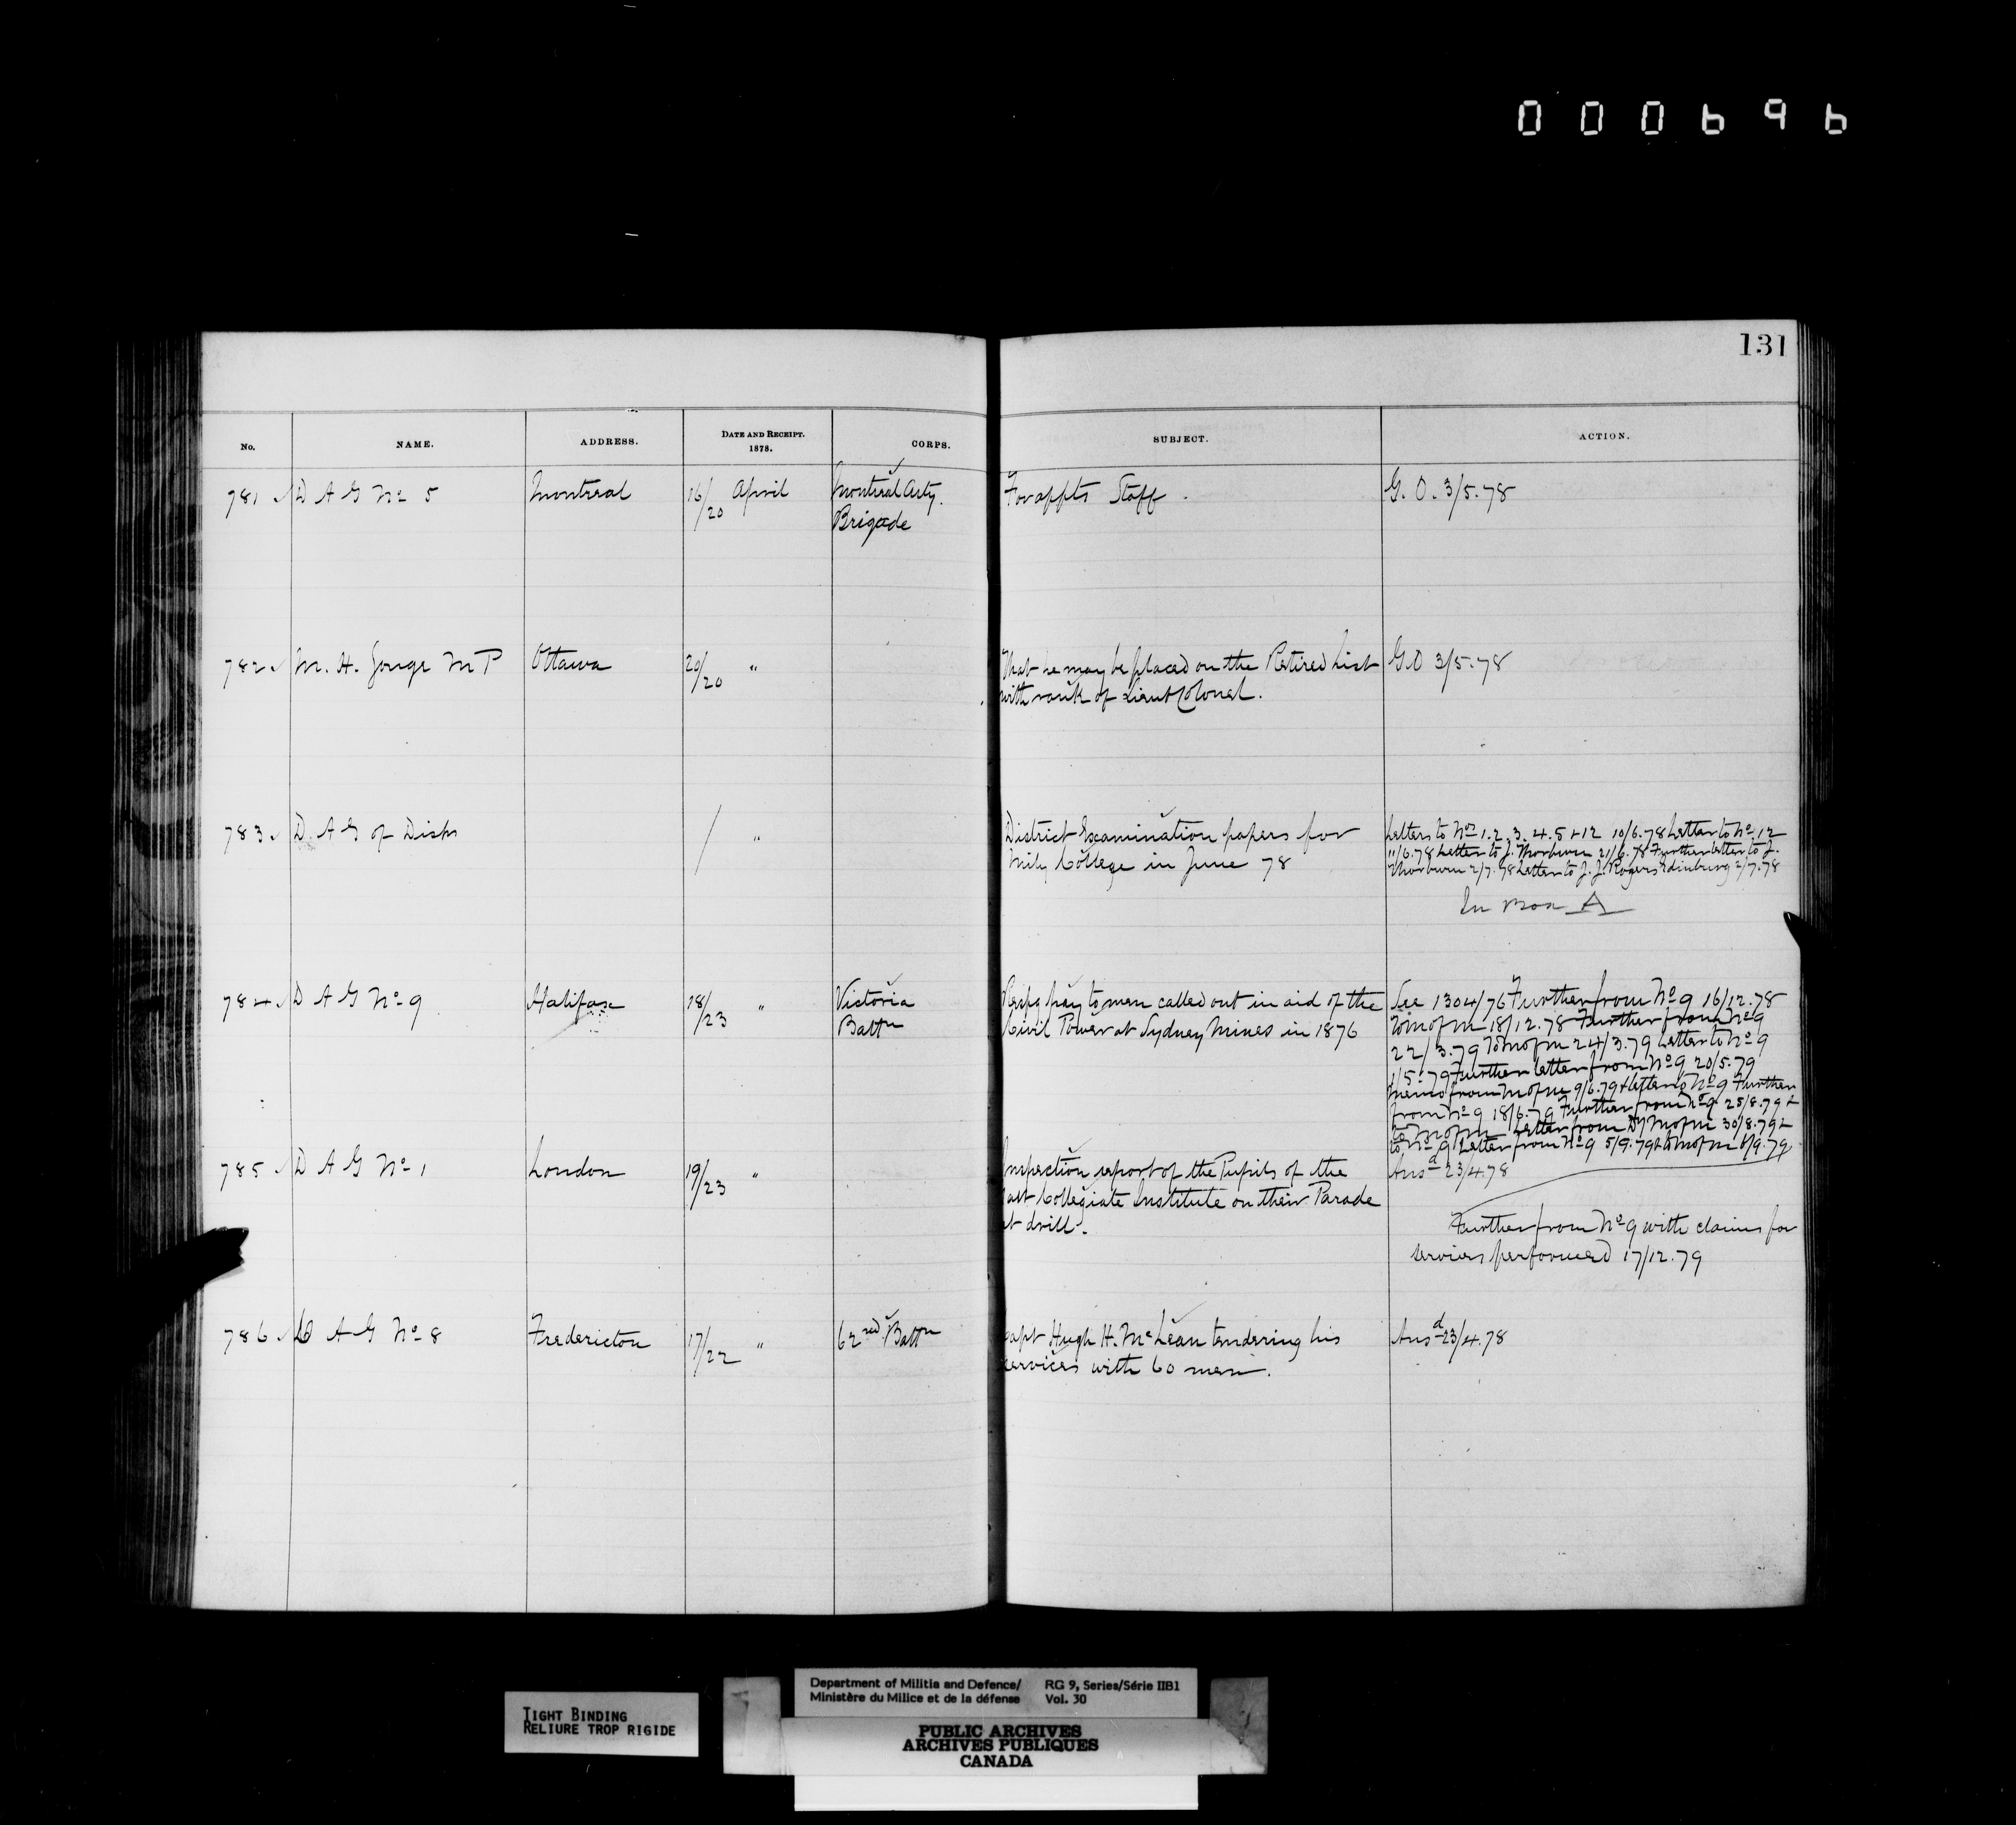 000696
131
No. NAME. ADDRESS. DATE AND RECEIPT. 1878. CORPS. SUBJECT. ACTION.
781 D A G No 5 Montreal 16/20 April Montreal Arty. For appts Staff. G. O. 3/5.78
Brigade
782 M. H. Ottawa 20/20 " That he may be placed on the Retired List G.O 3/5.78
with rank of Lieut Colonel.
783 D. A G of Dists / " District Examination papers for Letters to Nos 1.2.3.4.5+12 10/6.78 Letter to No 12
Mily College in June 78 11/6.78 Letter to J. Thorburn 21/6.78 Further letter to J.
Thorburn 2/7.78 Letter to J. J. Rogers 2/7.78
In Box A
784 D A G No 9 Halifax 18/23 " Victoria pay to men called out in aid of the See 1304/76 Further from No 9 16/12.78
Battn Civil Power at Sydney Mines in 1876 To M of M 18/12.78 Further from No 9
22/3.79 To M of M 24/3.79 Letter to No 9
1/5.79 Further letter from No 9 20/5.79
Memo from M of M 9/6.79 + letter to No 9 Further
from No 9 18/6.79 Further from No 9 25/8.79 +
to M of M Letter from Dy M of M 30/8.79 +
to No 9 Letter from No 9 5/9.79 + to M of M /9.79
785 D A G No 1 London 19/23 " Inspection report of the Pupils of the Ansd 23/4.78
Collegiate Institute on their Parade
at drill.
Further from No 9 with claims for
services performed 17/12.79
786 D A G No 8 Fredericton 17/22 " 62nd Battn Capt Hugh H. McLean tendering his Ansd 23/4.78
services with 60 men.
TIGHT BINDING
RELIURE TROP RIGIDE
Department of Militia and Defence/ RG 9, Series/Série IIB1
Ministère du Milice et de la défense Vol. 30
PUBLIC ARCHIVES
ARCHIVES PUBLIQUES
CANADA